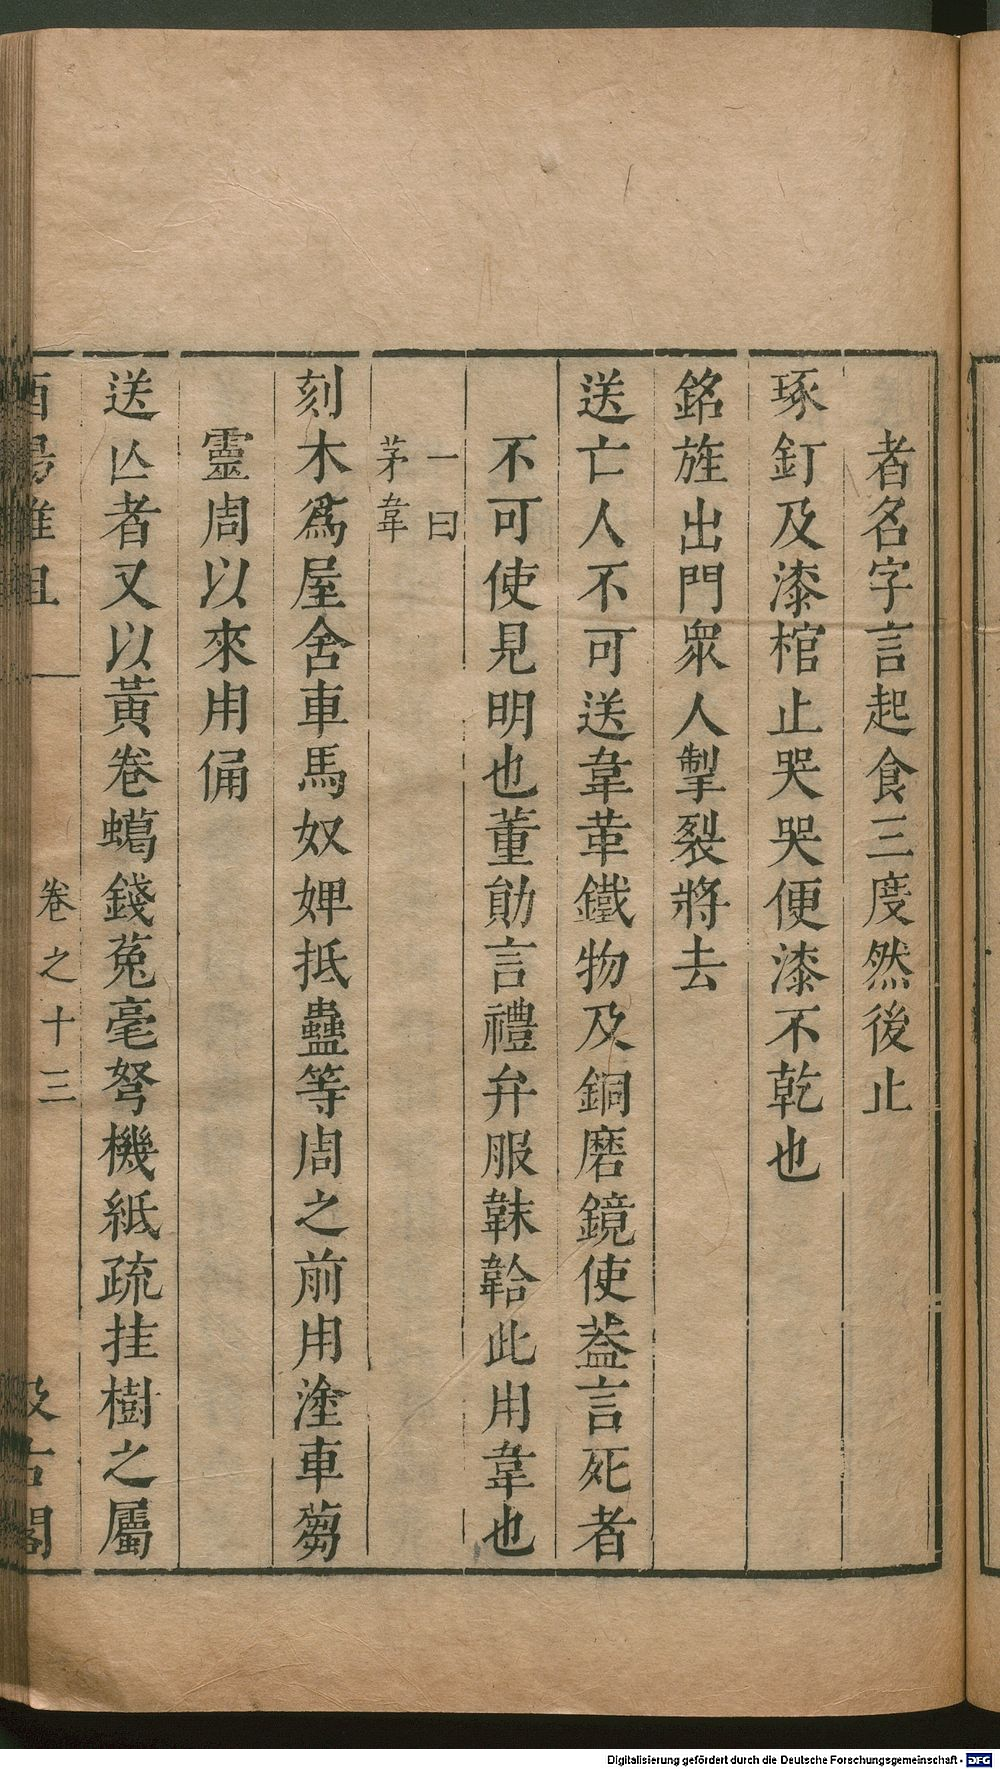 者名字言起食三度然後止
琢釘及漆棺止哭哭便漆不乾也
銘旌出門衆人掣裂將去
送亡人不可送韋革鐵物及銅磨鏡使葢言死者
不可使見明也董勛言禮弁服韎韐此用韋也
一曰
茅韋
刻木爲屋舍車馬奴婢抵蠱等周之前用塗車蒭
靈周以來用俑
送亾者又以黃卷蠟錢菟毫弩機紙疏挂樹之屬
酉陽雜俎
卷之十三
汲古閣
Digitalisierung gefördert durch die Deutsche Forschungsgemeinschaft - DFG